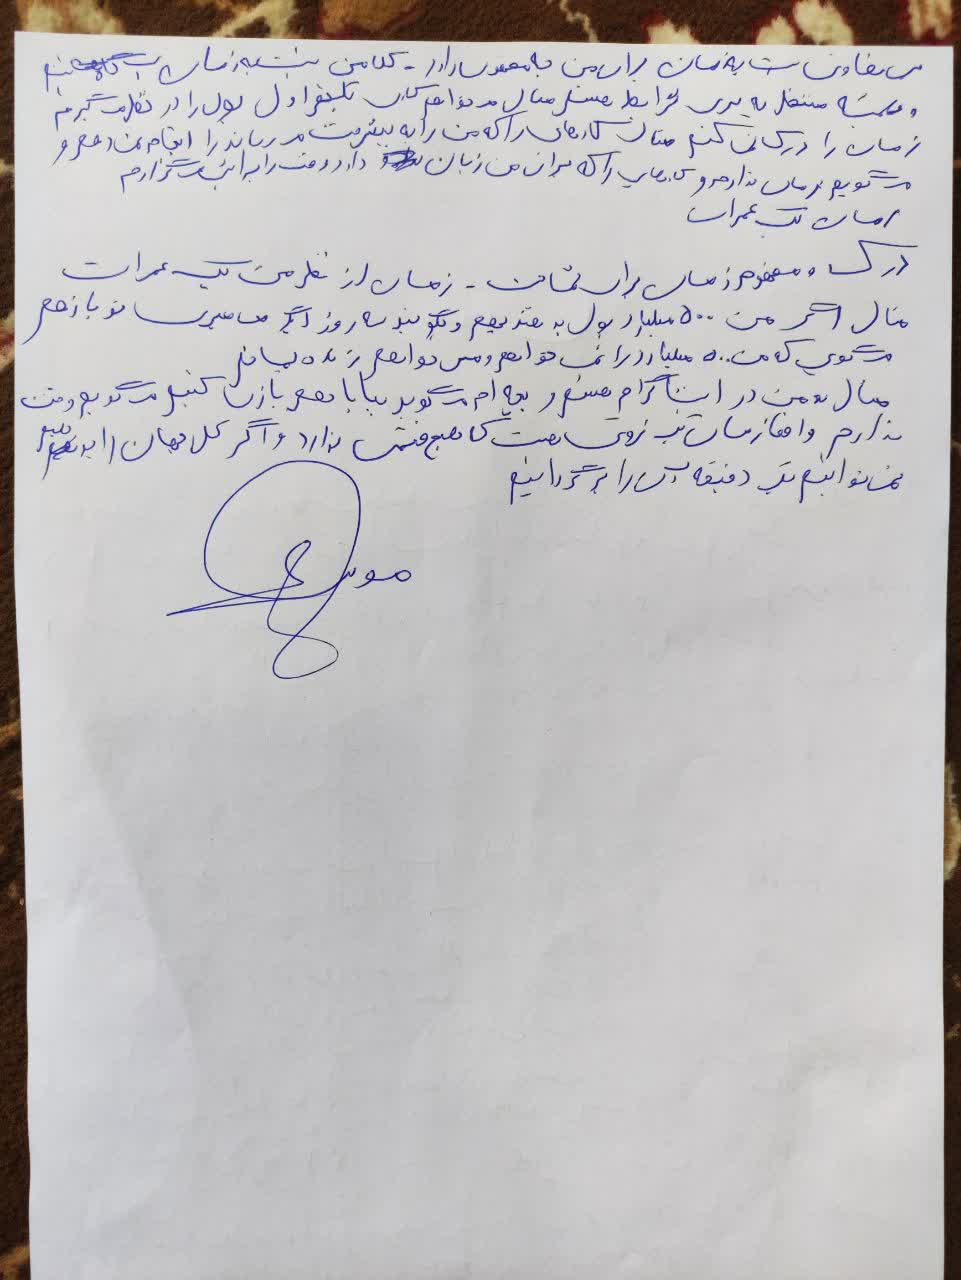 بی تفاوتی نسبت به زمان برای من چه معنی دارد - کلا من نسبت به زمان
و همیشه منتظر یه سری شرایط هستم مثال می خواهم کاری بکنم اول پول را در نظر میگیرم
زمان را درک نمی کنم مثال کارهایی را که من را به پیشرفت می رساند را انجام نمی دهم و
میگویم زمان ندارم و کارهایی را که برای من زیان دارد وقت را برایش میگذارم
زمان یک عمر است
درک و مفهوم زمان برای شما چیست - زمان از نظر من یک عمر است
مثال اگر من ۵۰۰ میلیارد پول به شما بدهم و بگویند سه روز دیگر می میری تو باز هم
میگویی که من ۵۰۰ میلیارد را نمی خواهم و می خواهم زنده بمانم
مثال یه من در اینستاگرام هستم و بچه ام میگوید بیا با هم بازی کنیم میگویم وقت
ندارم واقعا زمان یک ثروتی است که هیچ قیمتی ندارد و اگر کل جهان را بدهیم
نمی توانیم یک دقیقه آن را برگردانیم